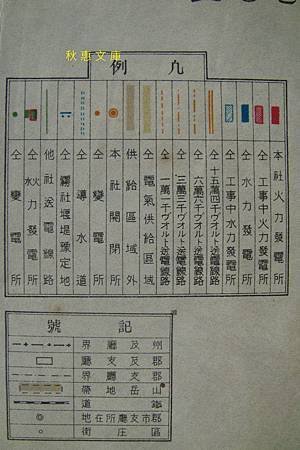 秋惠文庫
凡例
本社火力發電所
仝工事中火力發電所
仝水力發電所
仝工事中水力發電所
仝十五萬四千ヴオルト送電線路
仝六萬六千ヴオルト送電線路
仝三萬三千ヴオルト送電線路
仝一萬一千ヴオルト送電線路
仝電氣供給區域
供給區域外
本社開閉所
仝變電所
仝導水道
仝霧社堰堤豫定地
他社送電線路
仝水火力發電所
仝變電所
記號
州及廳界
郡及支廳
郡支廳界
山岳地帶
鐵道
郡市支廳所在地
區庄街